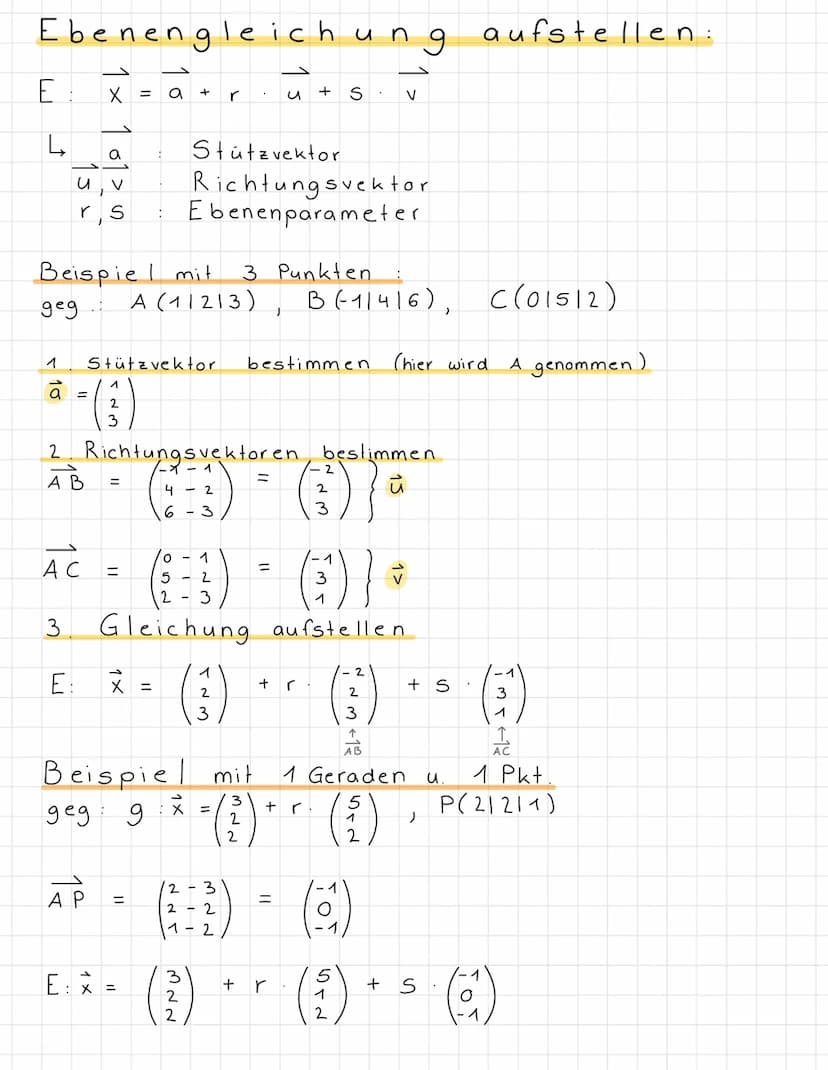 Ebenengleichung aufstellen:
E: x⃗ = a⃗ + r · u⃗ + s · v⃗
↳ a⃗ : Stützvektor
u⃗, v⃗ : Richtungsvektor
r, s : Ebenenparameter
Beispiel mit 3 Punkten:
geg.: A(1|2|3), B(-1|4|6), C(0|5|2)
1. Stützvektor bestimmen (hier wird A genommen)
a⃗ = (1 2 3)
2. Richtungsvektoren bestimmen
AB⃗ = (-1 - 1 4 - 2 6 - 3) = (-2 2 3) } u⃗
AC⃗ = (0 - 1 5 - 2 2 - 3) = (-1 3 1) } v⃗
3. Gleichung aufstellen
E: x⃗ = (1 2 3) + r · (-2 2 3) + s · (-1 3 1)
↑ ↑
AB⃗ AC⃗
Beispiel mit 1 Geraden u. 1 Pkt.
geg: g: x⃗ = (3 2 2) + r · (5 1 2), P(2|2|1)
AP⃗ = (2 - 3 2 - 2 1 - 2) = (-1 0 -1)
E: x⃗ = (3 2 2) + r · (5 1 2) + s · (-1 0 -1)